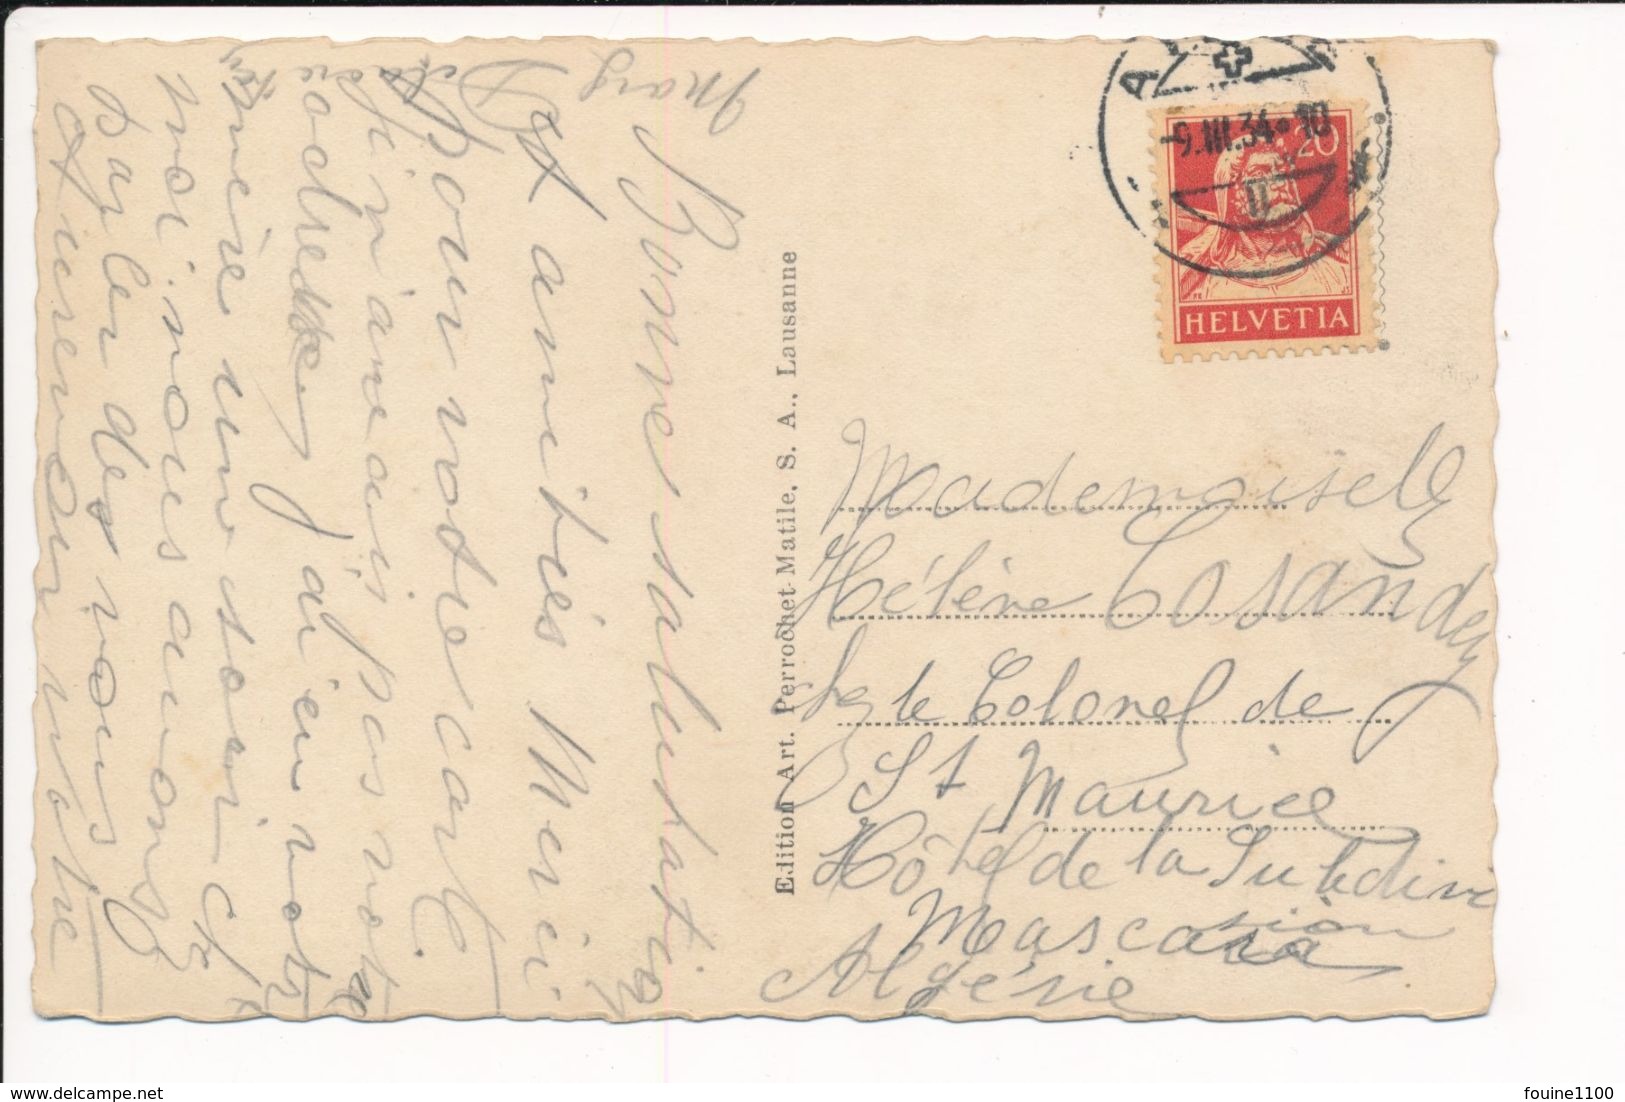 Bonne salutation
Et amitiés Merci
Pour votre carte
je n'avais pas votre
adresse J'ai eu votre
mère une soir ch
moi nous avons
parler de vous
Aurevoir votre
Marg
Edition Art. Perrochet-Matile, S. A., Lausanne
-9.III.34-10
20
HELVETIA
Mademoiselle
Hélène Cosandey
le Colonel de
St Maurice
Hôtel de la Subdivi
sion
Mascara
Algérie
www.delcampe.net
fouine1100